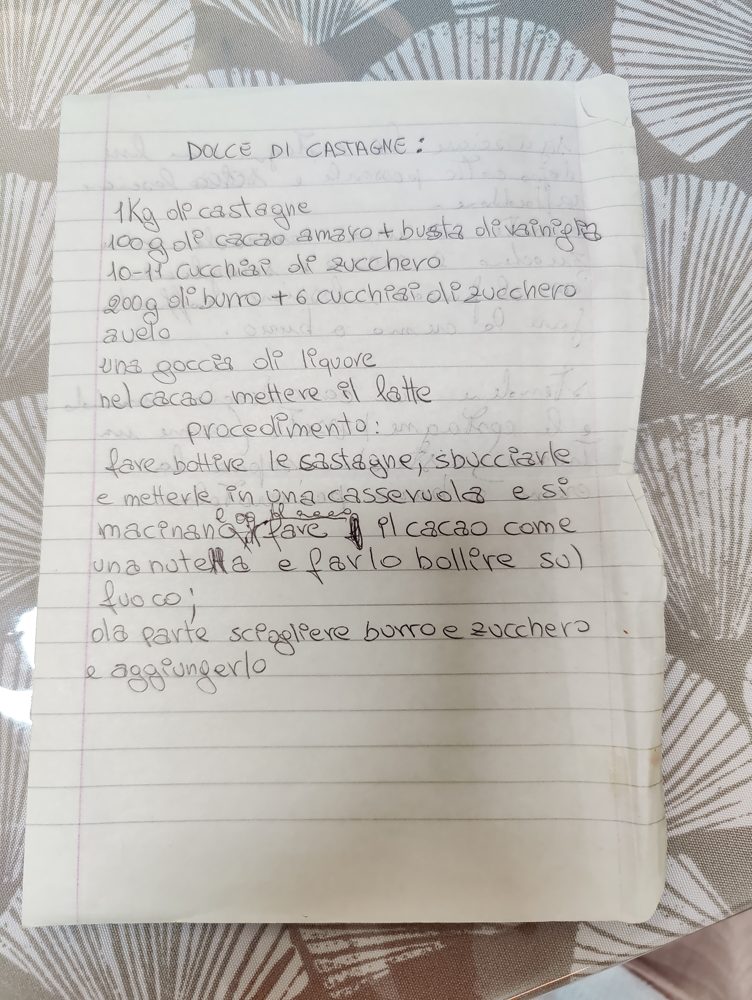 DOLCE DI CASTAGNE:
1Kg di castagne
100g di cacao amaro + busta di vainiglia
10-11 cucchiai di zucchero
200g di burro + 6 cucchiai di zucchero
a velo
una goccia di liquore
nel cacao mettere il latte
procedimento:
fare bollire le castagne, sbucciarle
e metterle in una casseruola e si
macinano, fare il cacao come
una nutella e farlo bollire sul
fuoco;
da parte sciogliere burro e zucchero
e aggiungerlo